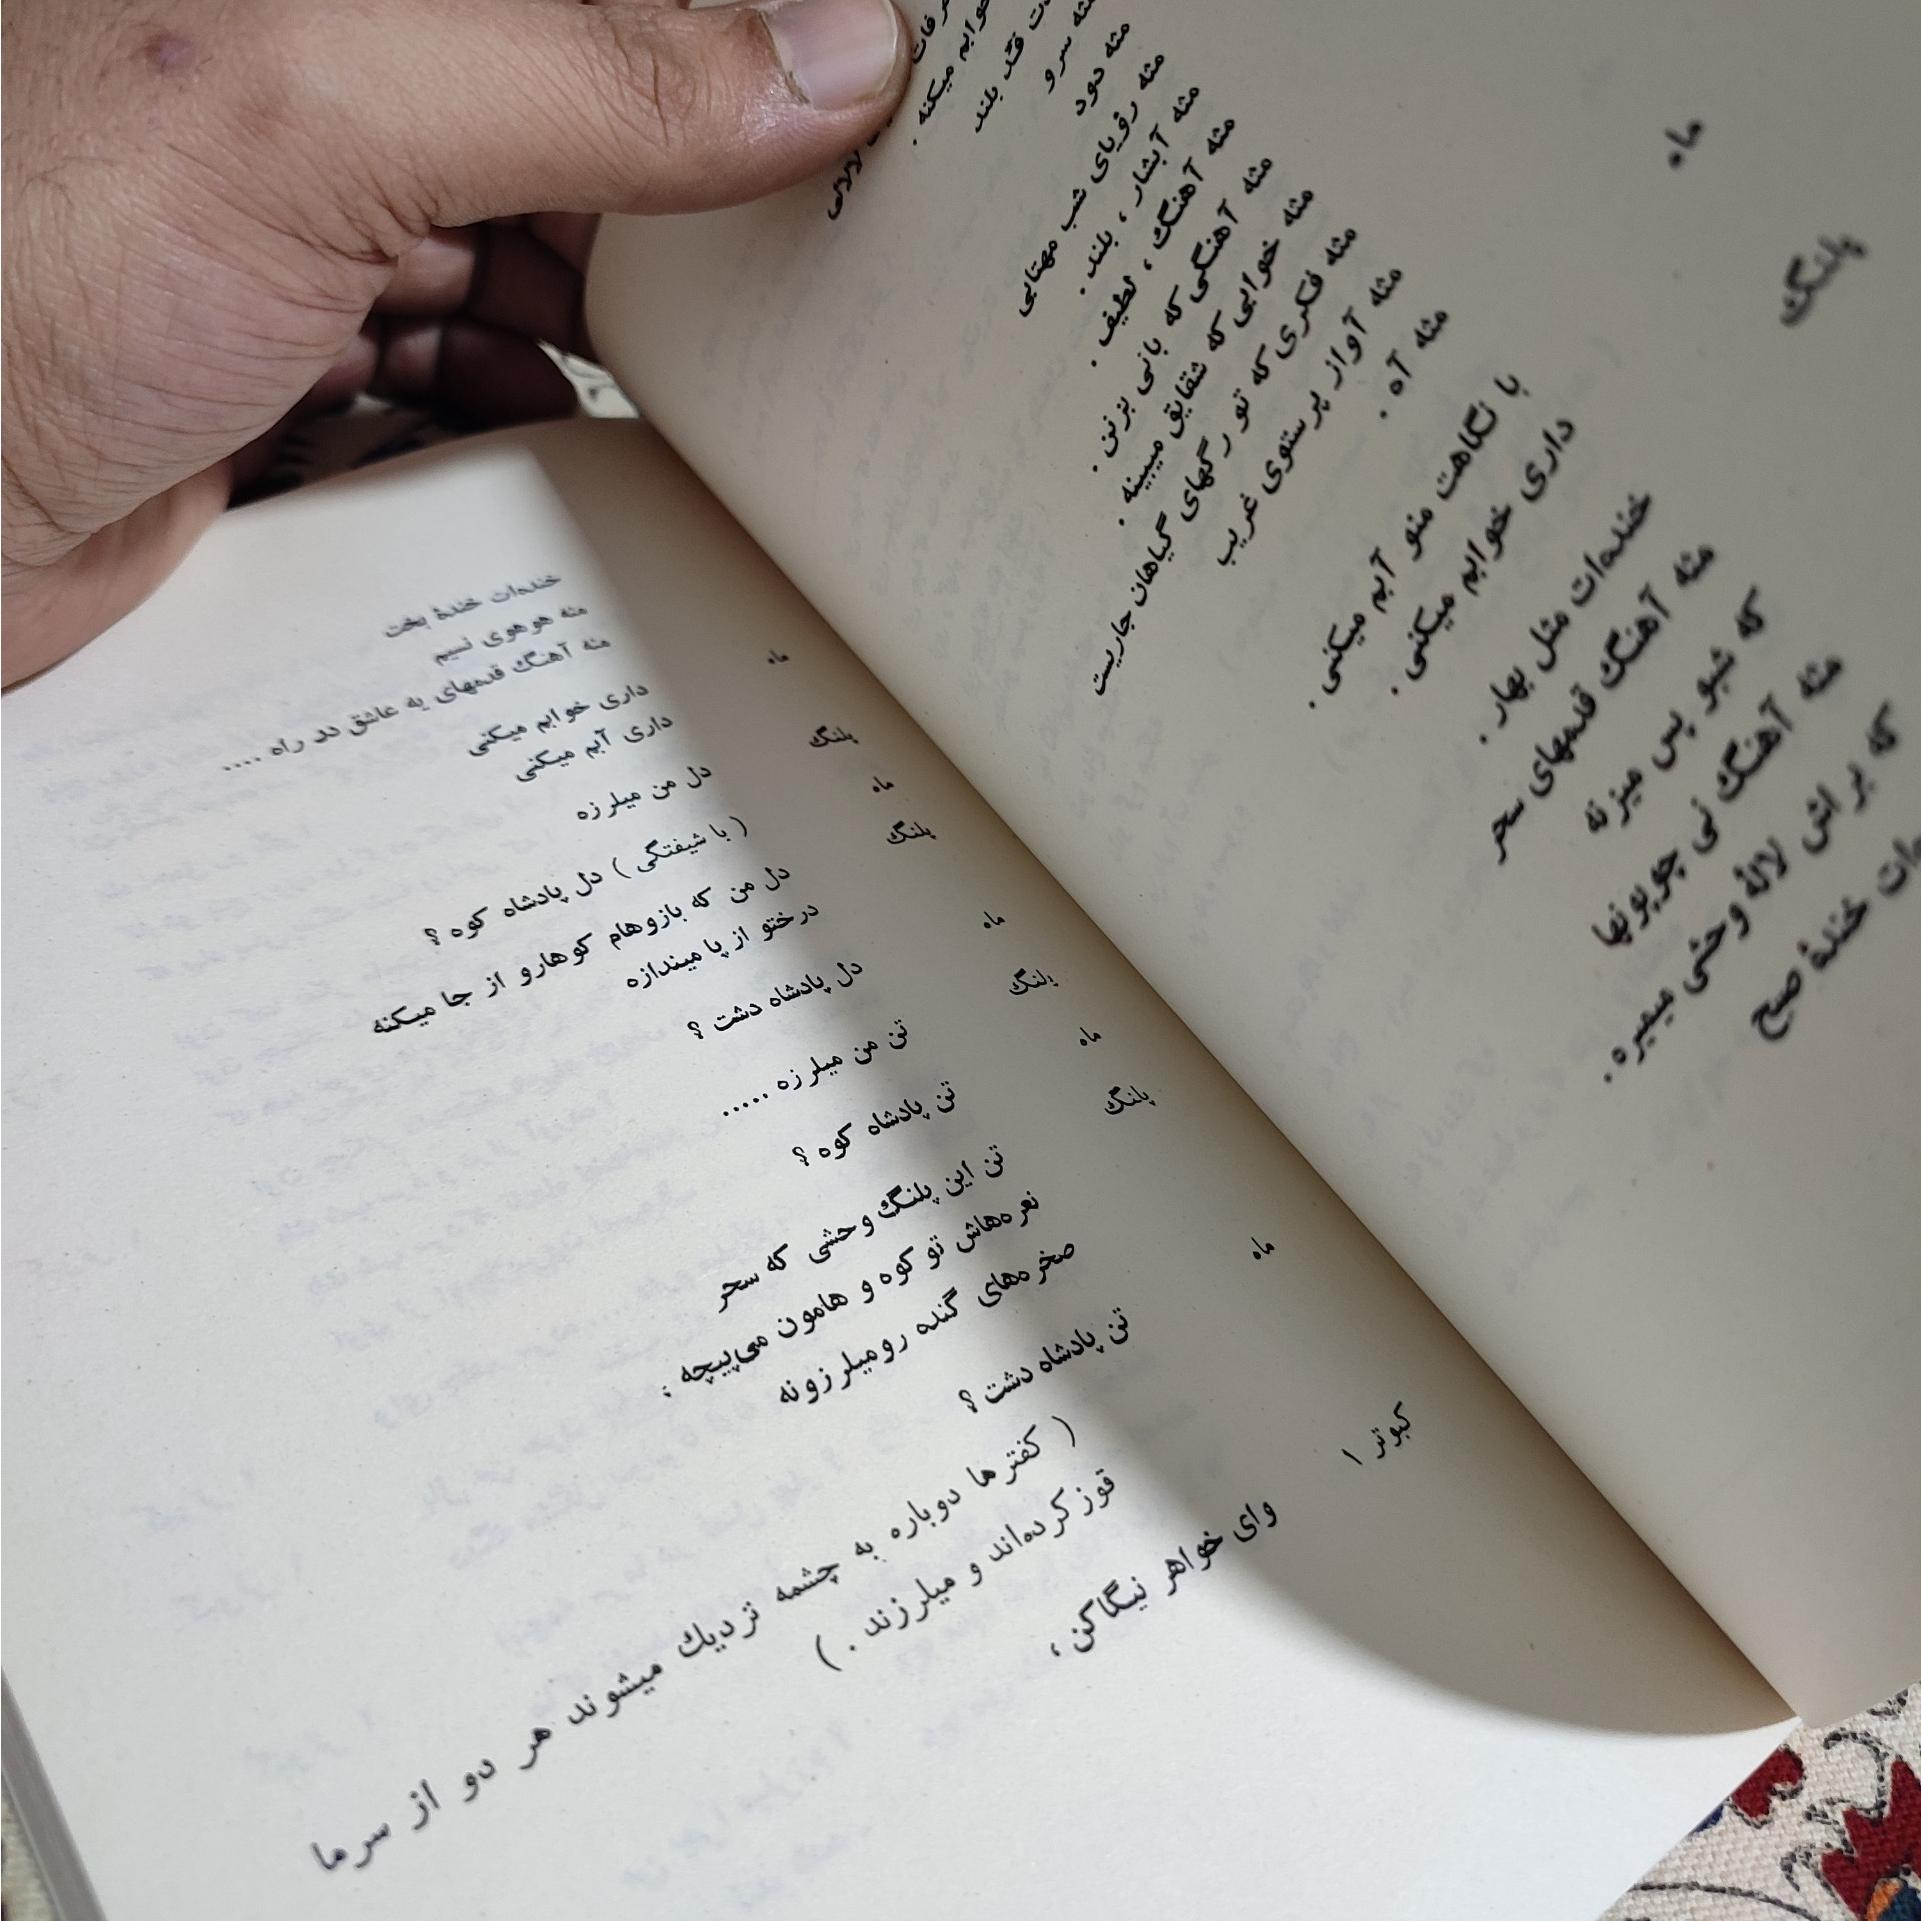 خوابم میکنه .
لالائی
قد بلند
مثه سرو
مثه دود
مثه رؤیای شب مهتابی
مثه آبشار ، بلند .
مثه آهنگ ، لطیف .
مثه آهنگی که بانی بزنن .
مثه خوابی که شقایق میبینه .
مثه فکری که تو رگهای گیاهان جاریست
مثه آواز پرستوی غریب
مثه آه .
ماه با نگاهت منو آبم میکنی .
داری خوابم میکنی .
پلنگ خنده‌ات مثل بهار .
مثه آهنگ قدمهای سحر
که شبو پس میزنه
مثه آهنگ نی چوپونها
که براش لالهٔ وحشی میمیره .
خندهٔ صبح
خنده‌ات خندهٔ بخت
مثه هوهوی نسیم
مثه آهنگ قدمهای یه عاشق دد راه ....
ماه داری خوابم میکنی
داری آبم میکنی
پلنگ دل من میلرزه
ماه ( با شیفتگی ) دل پادشاه کوه ؟
پلنگ دل من که بازوهام کوهارو از جا میکنه
درختو از پا میندازه
ماه دل پادشاه دشت ؟
پلنگ تن من میلرزه .....
ماه تن پادشاه کوه ؟
پلنگ تن این پلنگ وحشی که سحر
نعره‌هاش تو کوه و هامون می‌پیچه ،
صخره‌های گنده رومیلرزونه
ماه تن پادشاه دشت ؟
( کفترها دوباره به چشمه نزدیك میشوند هر دو از سرما
قوز کرده‌اند و میلرزند . )
کبوتر ۱ وای خواهر نیگاکن ،